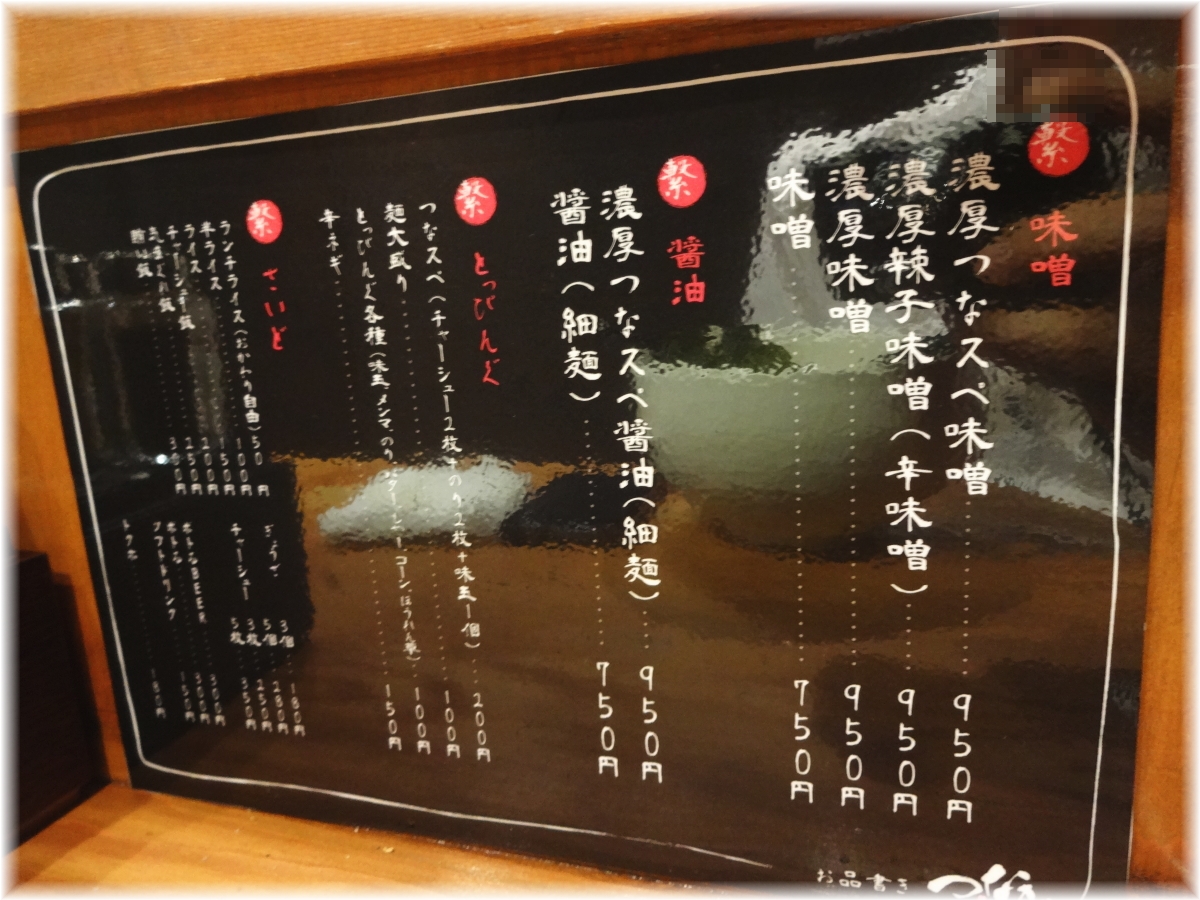 繋 味噌
濃厚つなスペ味噌 950円
濃厚辣子味噌(辛味噌) 950円
濃厚味噌 950円
味噌 750円
繋 醤油
濃厚つなスペ醤油(細麺) 950円
醤油(細麺) 750円
繋 とっぴんぐ
つなスペ(チャーシュー2枚+のり2枚+味玉一個) 200円
麺大盛り 100円
とっぴんぐ各種(味玉、メンマ、のり、バター、コーン、ほうれん草) 100円
辛ネギ 150円
繋 さいど
ランチライス(おかわり自由) 50円
半ライス 100円
ライス 150円
チャーシュー飯 200円
250円
300円
ぎょうざ 3個 180円
5個 280円
チャーシュー 3枚 250円
5枚 350円
ボトルBEER
ボトル
ソフトドリンク 150円
トクホ 180円
お品書き